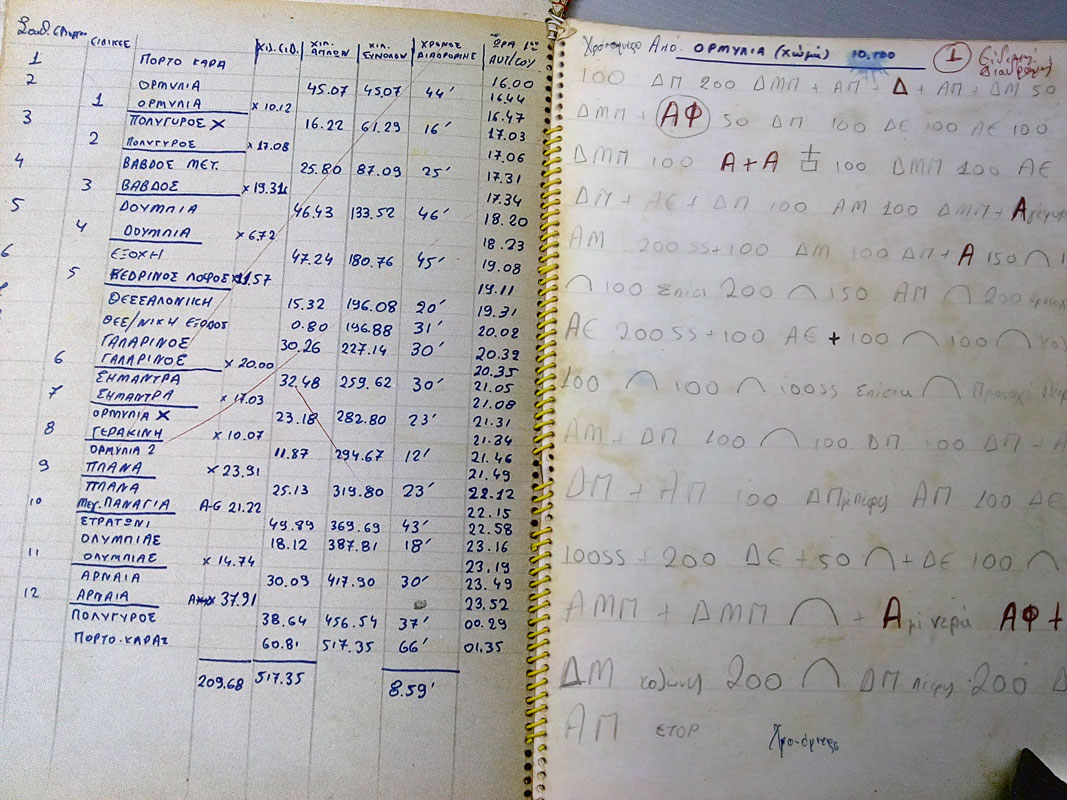 ΕΙΔΙΚΕΣ ΧΙΛ. Ε.Δ. ΧΙΛ. ΑΠΛΩΝ ΧΙΛ. ΣΥΝΟΛΩΝ ΧΡΟΝΟΣ ΔΙΑΔΡΟΜΗΣ ΩΡΑ 1ου ΑΥΤ/ΤΟΥ
1 ΠΟΡΤΟ ΚΑΡΑ 16.00
2 ΟΡΜΥΛΙΑ 45.07 45.07 44' 16.44
1 ΟΡΜΥΛΙΑ x 10.12 16.47
3 ΠΟΛΥΓΥΡΟΣ X 16.22 61.29 16' 17.03
2 ΠΟΛΥΓΥΡΟΣ x 17.08 17.06
4 ΒΑΒΔΟΣ ΜΕΤ. 25.80 87.09 25' 17.31
3 ΒΑΒΔΟΣ x 19.31 17.34
5 ΔΟΥΜΠΙΑ 46.43 133.52 46' 18.20
4 ΔΟΥΜΠΙΑ x 6.72 18.23
6 ΕΞΟΧΗ 47.24 180.76 45' 19.08
5 ΚΕΔΡΙΝΟΣ ΛΟΦΟΣ 19.11
ΘΕΣΣΑΛΟΝΙΚΗ 15.32 196.08 20' 19.31
ΘΕΣ/ΝΙΚΗ ΕΞΟΔΟΣ 0.80 196.88 31' 20.02
ΓΑΛΑΡΙΝΟΣ 30.26 227.14 30' 20.32
6 ΓΑΛΑΡΙΝΟΣ x 20.00 20.35
ΣΗΜΑΝΤΡΑ 32.48 259.62 30' 21.05
7 ΣΗΜΑΝΤΡΑ x 17.03 21.08
ΟΡΜΥΛΙΑ X 23.18 282.80 23' 21.31
8 ΓΕΡΑΚΙΝΗ x 10.07 21.34
ΟΡΜΥΛΙΑ 2 11.87 294.67 12' 21.46
9 ΠΛΑΝΑ x 23.91 21.49
ΠΛΑΝΑ 25.13 319.80 23' 22.12
10 ΜΕΓ. ΠΑΝΑΓΙΑ Α-G 21.22 22.15
ΣΤΡΑΤΩΝΙ 49.89 369.69 43' 22.58
ΟΛΥΜΠΙΑΣ 18.12 387.81 18' 23.16
11 ΟΛΥΜΠΙΑΣ x 14.74 23.19
ΑΡΝΑΙΑ 30.09 417.90 30' 23.49
12 ΑΡΝΑΙΑ 37.91 23.52
ΠΟΛΥΓΥΡΟΣ 38.64 456.54 37' 00.29
ΠΟΡΤΟ-ΚΑΡΑΣ 60.81 517.35 66' 01.35
209.68 517.35 8.59'
Από ΟΡΜΥΛΙΑ (χώμα) 10,100 1 Ειδική Διαδρομή
100 ΔΠ 200 ΔΜΠ + ΑΠ + Δ + ΑΠ + ΔΜ 50
ΔΜΠ + ΑΦ 50 ΔΠ 100 ΔΕ 100 ΑΕ 100
ΔΜΠ 100 Α+Α 100 ΔΜΠ 100 ΑΕ
ΔΠ + ΑΕ + ΔΠ 100 ΑΜ 100 ΔΜΠ + Α
ΑΜ 200 SS+100 ΔΜ 100 ΔΠ + Α 150
100 200 150 ΑΠ 200
ΑΕ 200 SS+100 ΑΕ + 100 100
100 100 100SS
ΑΜ + ΔΠ 100 100 ΔΠ 100 ΔΠ +
ΔΠ + ΑΠ 100 ΔΠ ΑΠ 100 ΔΕ
100SS + 200 ΔΕ + 50 + ΔΕ 100
ΑΜΠ + ΔΜΠ + Α με νερά ΑΦ +
ΔΜ 200 ΔΠ 200
ΑΠ ΣΤΟΡ